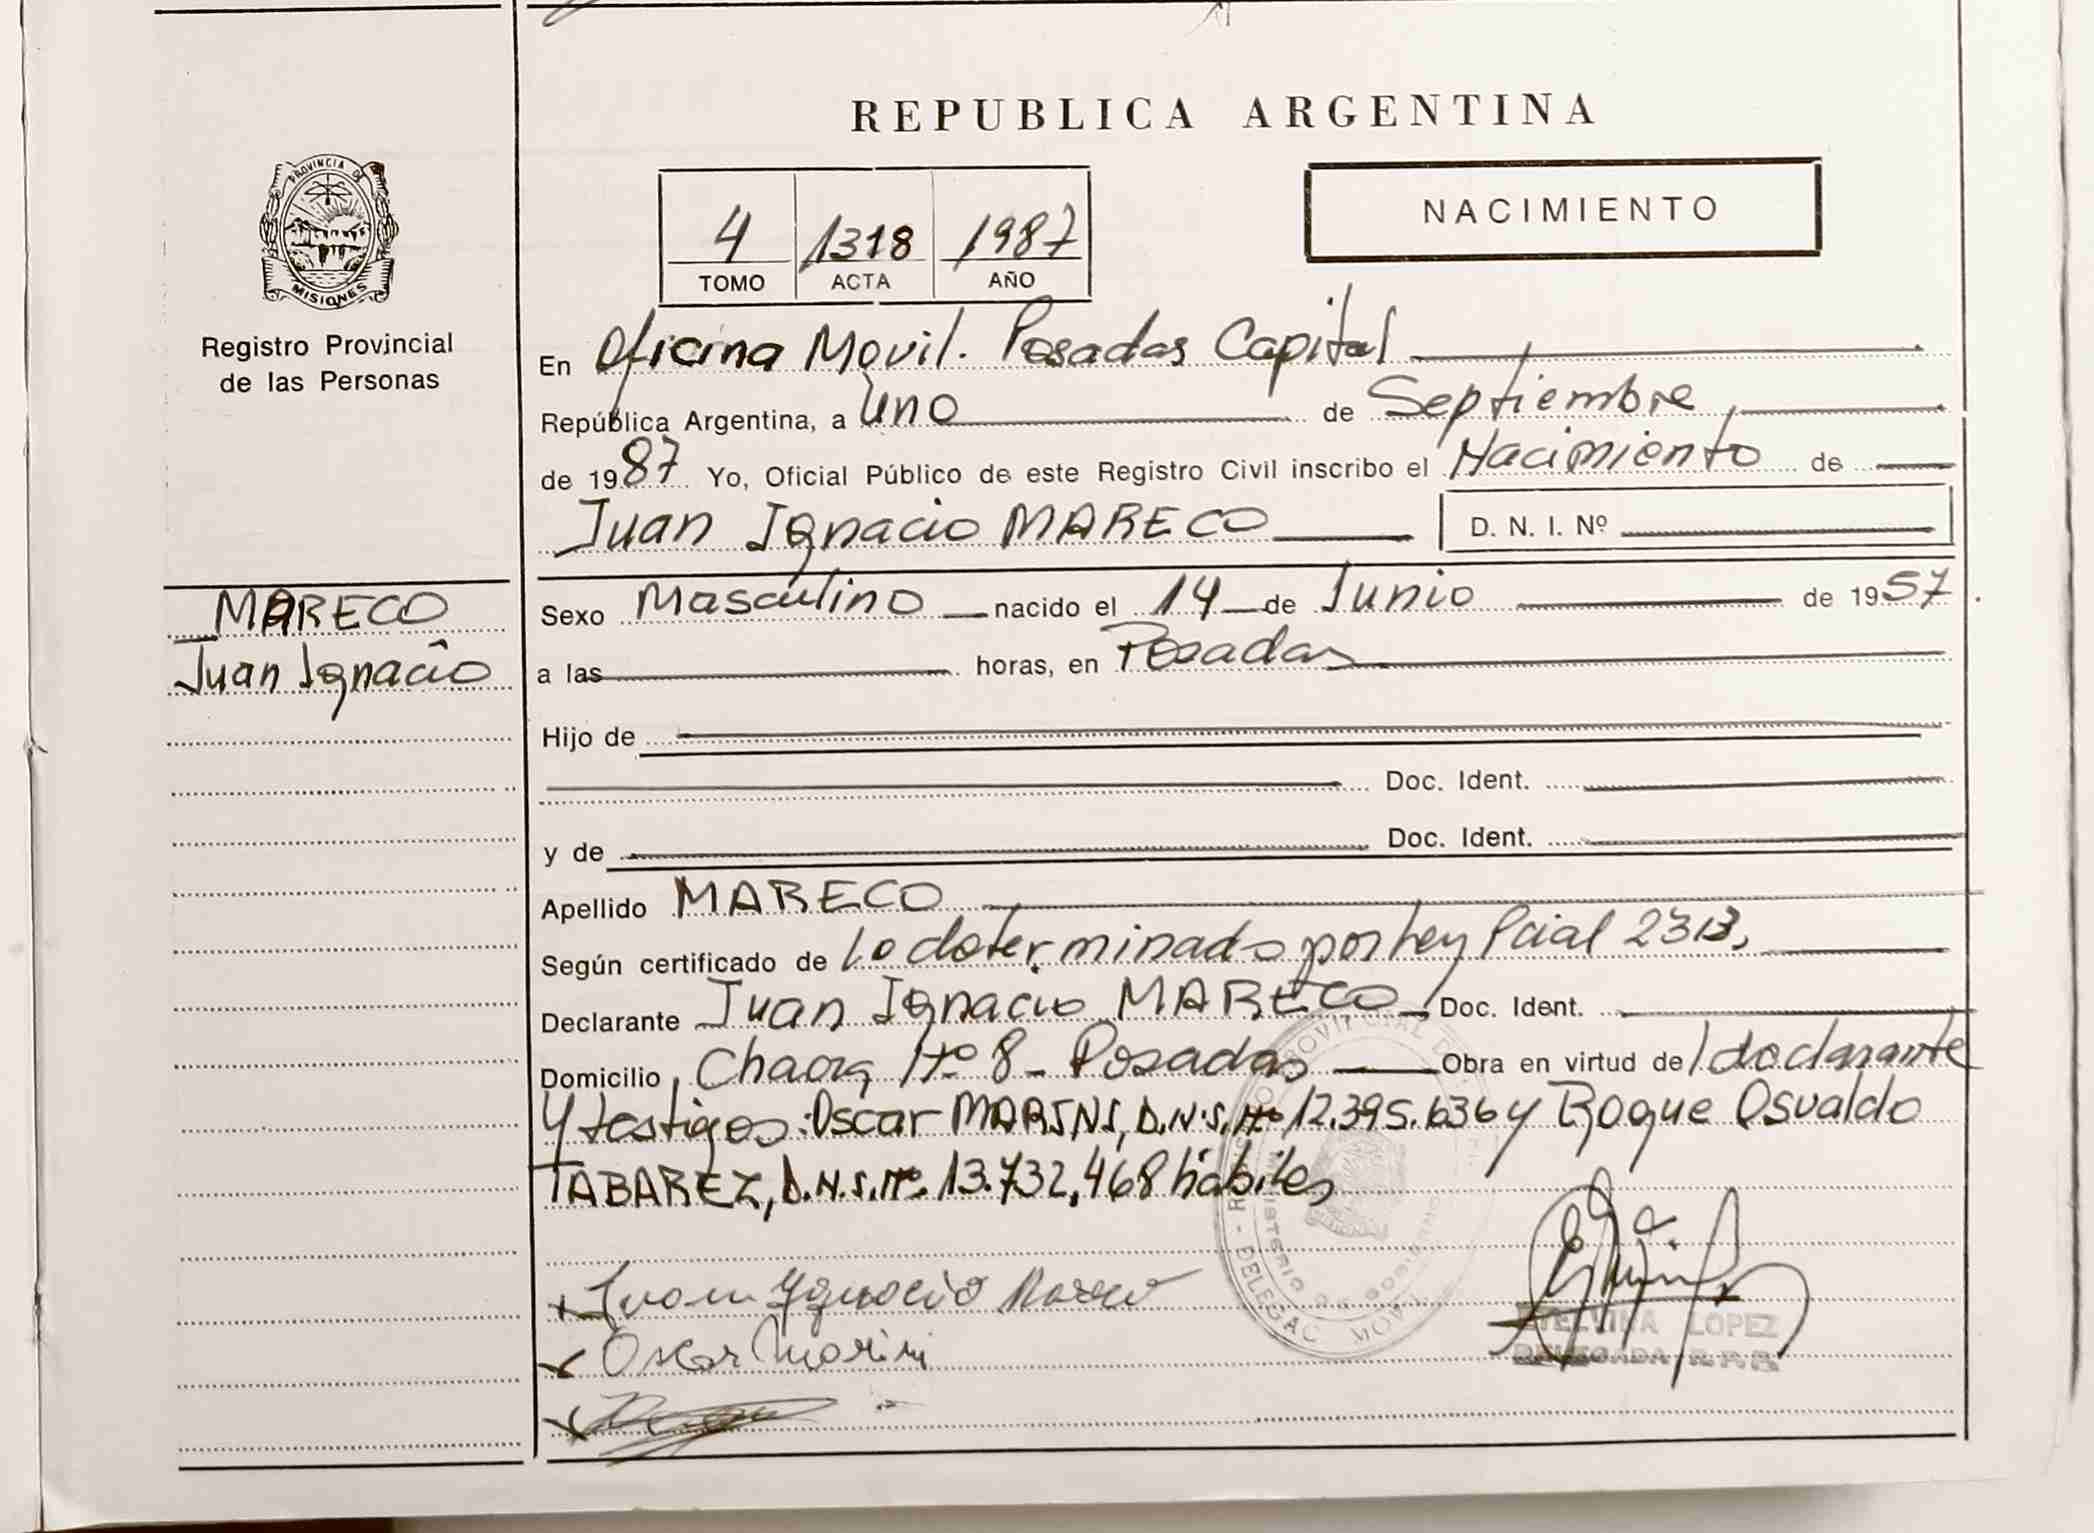 REPUBLICA ARGENTINA
PROVINCIA DE
MISIONES
Registro Provincial
de las Personas
4 1318 1987
TOMO ACTA AÑO
NACIMIENTO
En Oficina Movil. Posadas Capital
República Argentina, a Uno de Septiembre
de 1987 Yo, Oficial Público de este Registro Civil inscribo el Nacimiento de
Juan Ignacio MARECO D. N. I. Nº
MARECO
Juan Ignacio
Sexo Masculino nacido el 14 de Junio de 1957
a las horas, en Posadas
Hijo de
Doc. Ident.
y de Doc. Ident.
Apellido MARECO
Según certificado de Lo determinado por Ley Pcial 2313,
Declarante Juan Ignacio MARECO Doc. Ident.
Domicilio Chacra Nº 8 - Posadas Obra en virtud de l declarante
y testigos: Oscar MARINI, D.N.I. Nº 12.395.636 y Roque Osvaldo
TABAREZ, D.N.I. Nº. 13.732,468 hábiles
Juan Ygnacio Mareco
Oscar Marini
LOPEZ